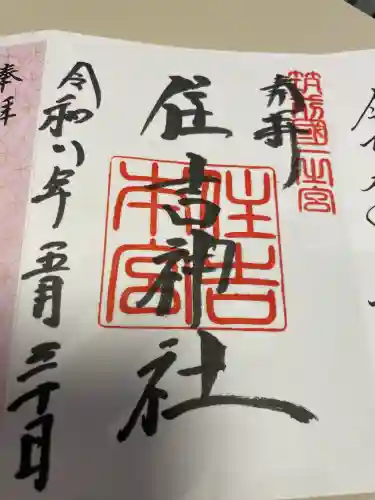 奉拝
筑前國一之宮
住吉神社
住吉本宮
令和八年五月三十日
奉拝